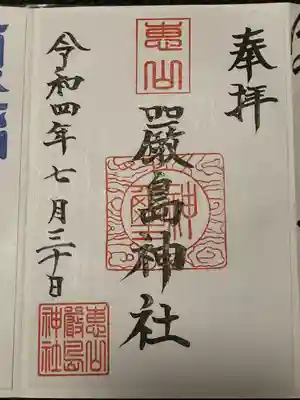 奉拝
恵山
嚴島神社
令和四年七月三十日
恵山
嚴島
神社